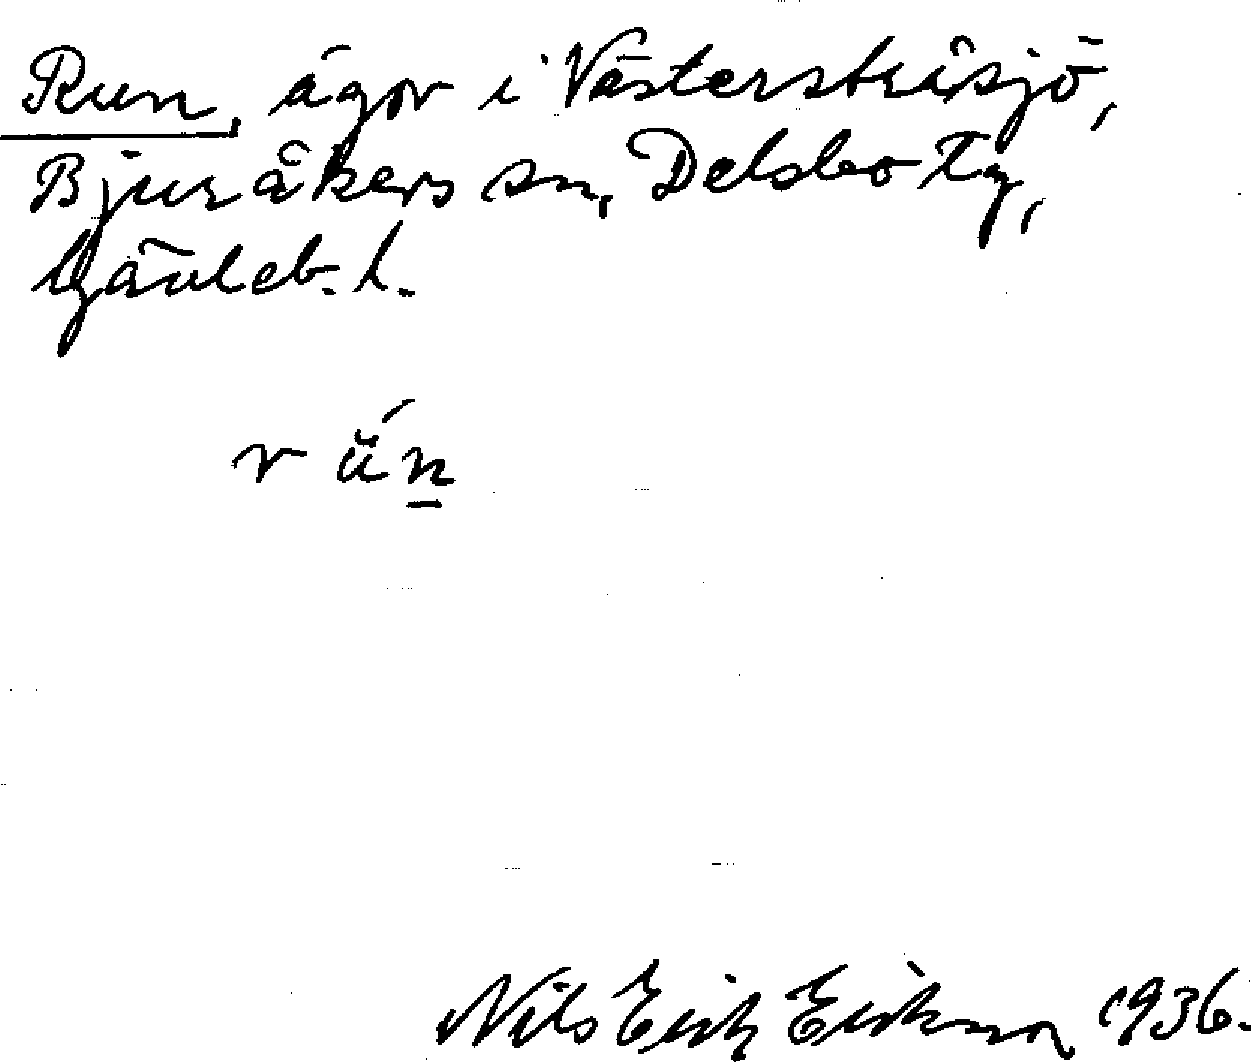 Run, ägor i Västerstråsjö,
Bjuråkers sn, Delsbo tg,
Gävleb. l.
rŭ́n̲
Nils Erik Erikson 1936.